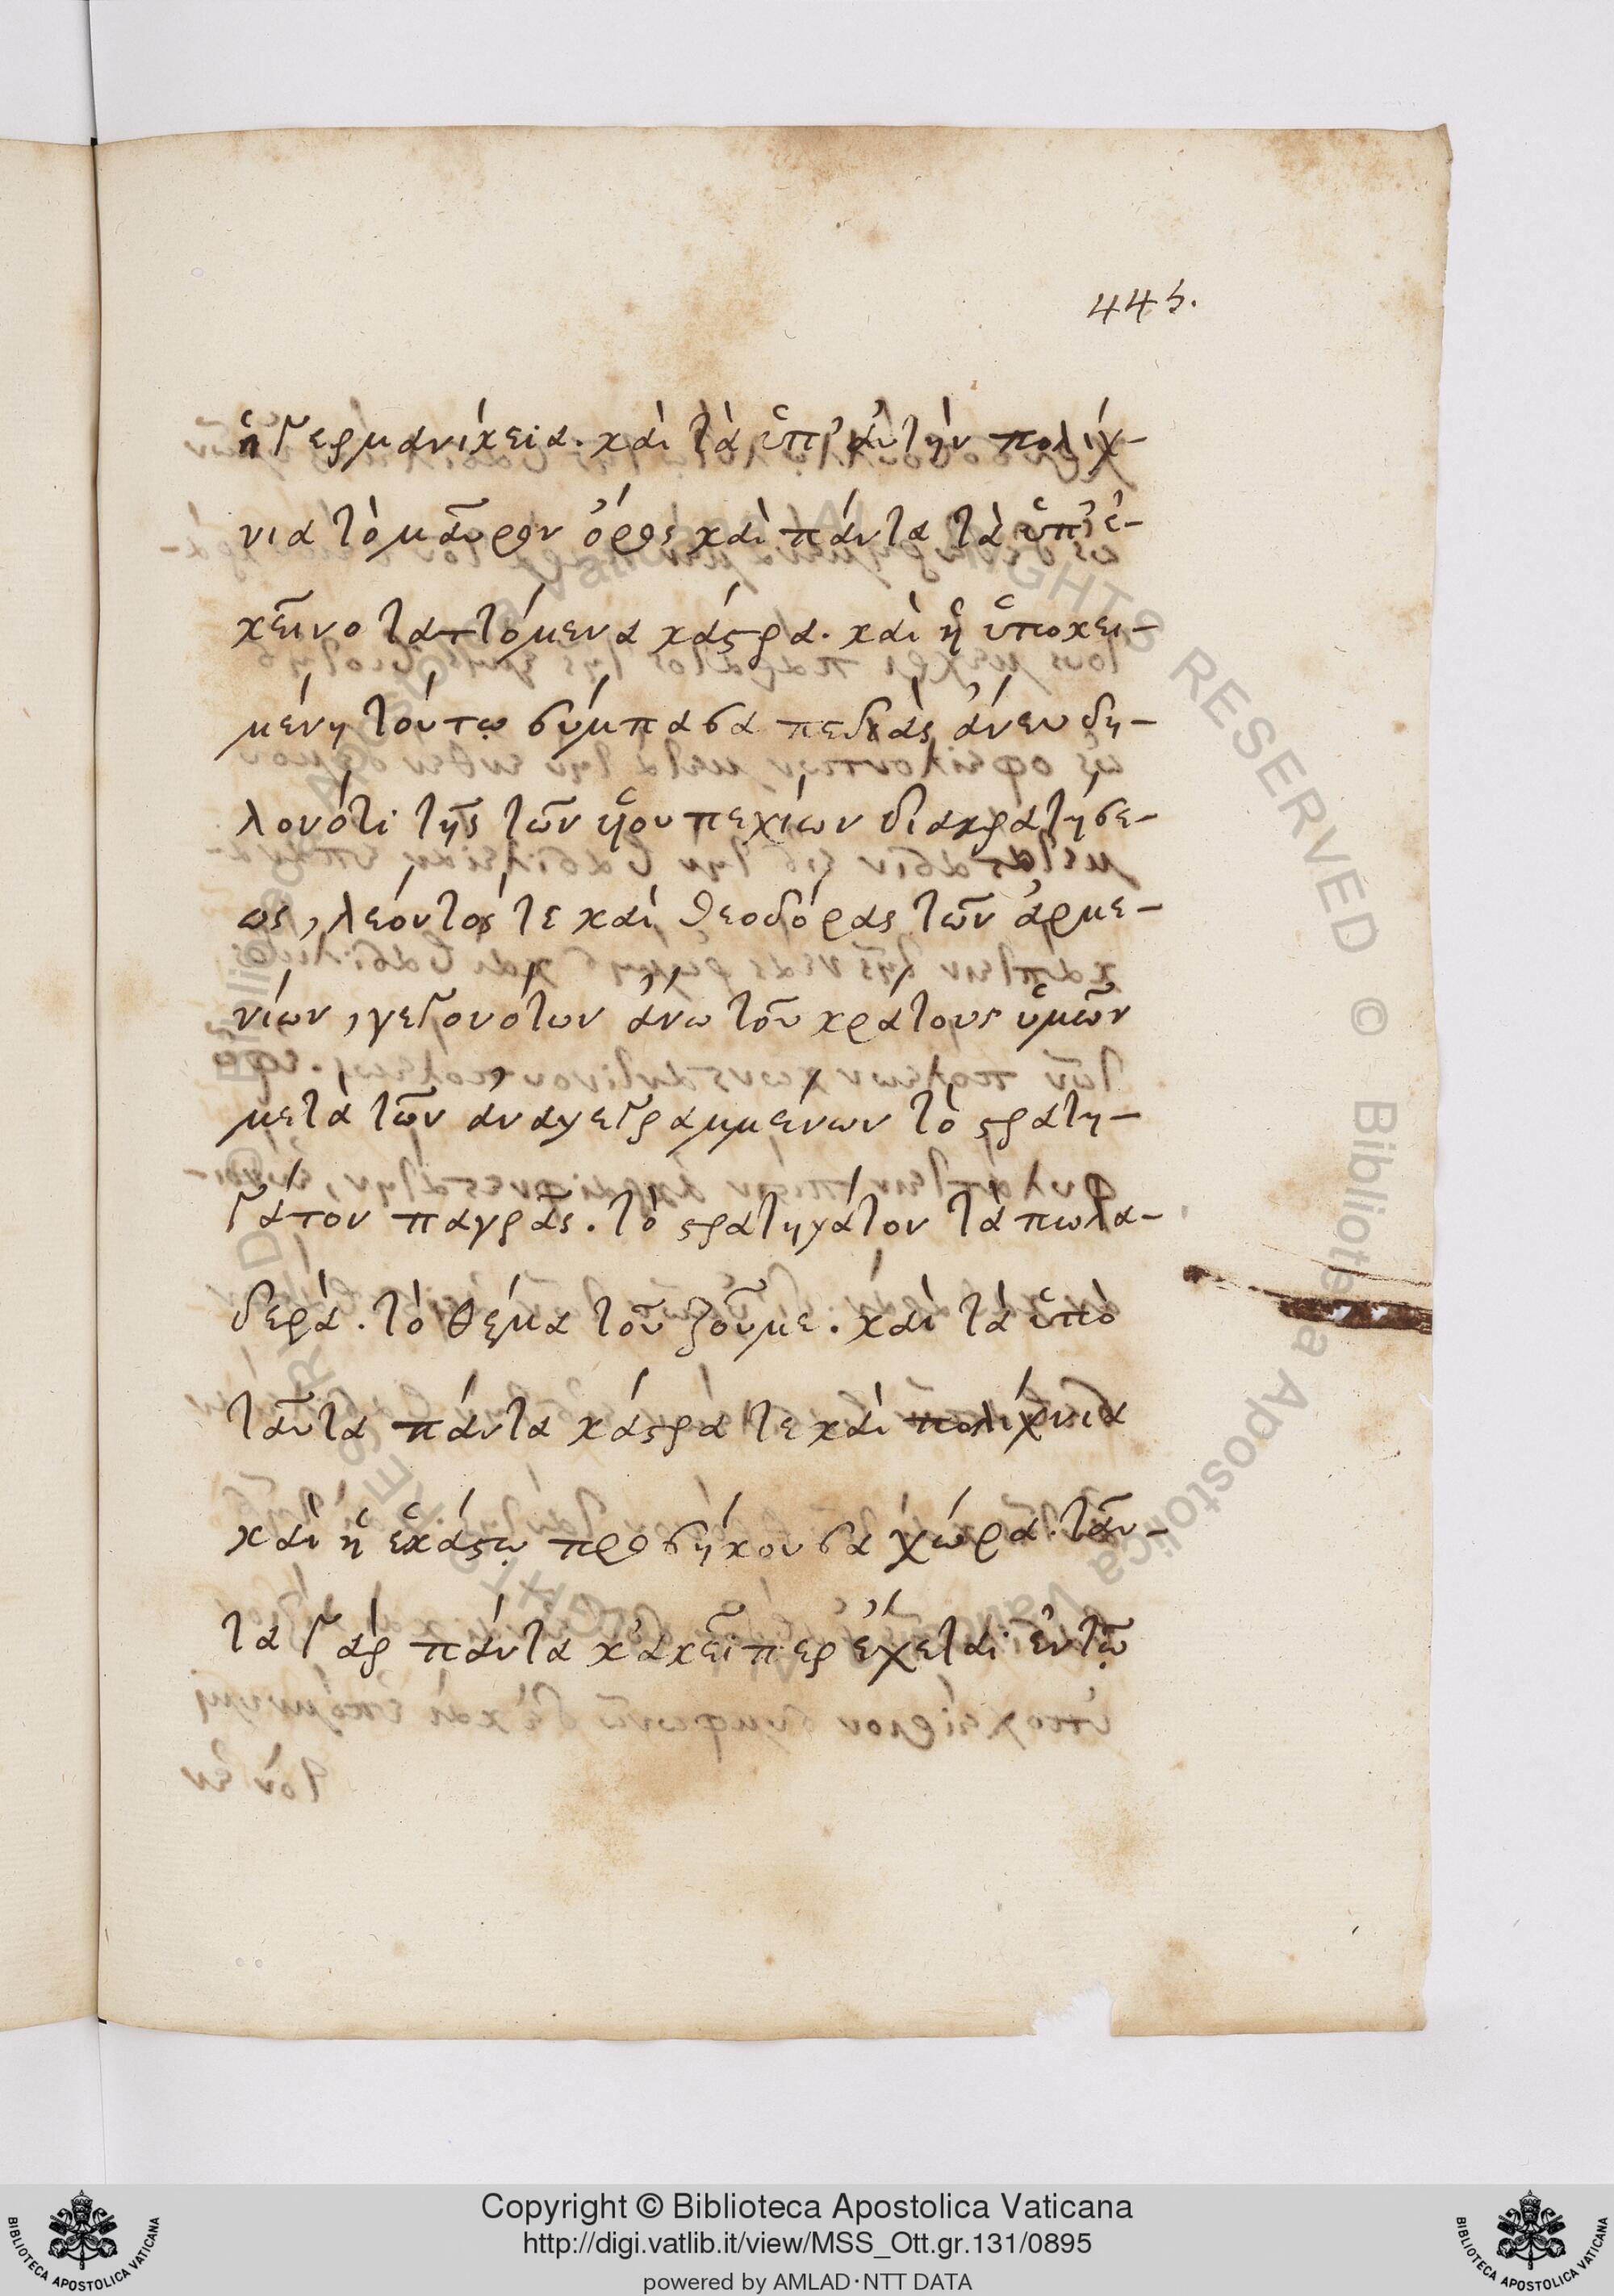 445.
ἡ Γερμανίκεια. καὶ τὰ ὑπ' ἀυτὴν πολίχ-
νια τὸ μᾶυρον ὄρος καὶ πάντα τὰ ὑπ' ἐ-
κεῖνο ταττόμενα κάστρα. καὶ ἡ ὑποκει-
μένη τούτῳ σύμπασα πεδιὰς ἄνευ δη-
λονότι τῆς τῶν ῥουπενίων διακρατήσε-
ως, λέοντός τε καὶ θεοδόρας τῶν ἀρμε-
νίων, γεγονότων ἄνω τοῦ κράτους ὑμῶν
μετὰ τῶν ἀναγεγραμμένων τὸ στρατη-
γάτον παγρᾶς. τὸ στρατηγάτον τὰ πωλα-
δερά. τὸ θέμα τοῦ ζοῦμε. καὶ τὰ ὑπὸ
τᾶυτα πάντα κάστρά τε καὶ πολίχνια
καὶ ἡ ἑκάστῳ προσήκουσα χώρα. τᾶυ-
τα γὰρ πάντα κἀκεῖπερ ἔχεται ἐν τῷ
Copyright © Biblioteca Apostolica Vaticana
http://digi.vatlib.it/view/MSS_Ott.gr.131/0895
powered by AMLAD·NTT DATA
BIBLIOTECA APOSTOLICA VATICANA
BIBLIOTECA APOSTOLICA VATICANA